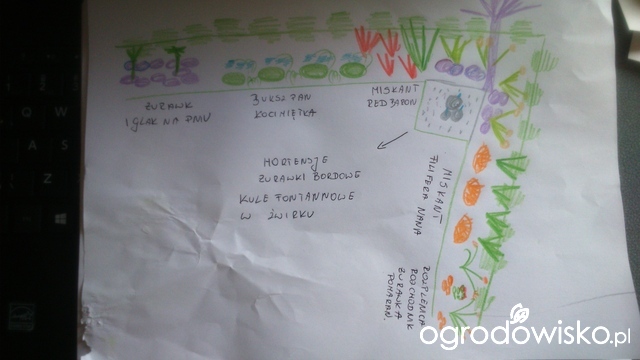 ŻURAWK
I GŁAK NA PMU
BUKSZPAN
KOCIMIĘTKA
MISKANT
RED BARON
HORTENSJE
ŻURAWKI BORDOWE
KULE FONTANNOWE
W ŻWIRKU
MISKANT
FILIFERA NANA
ROZPLENICA
ROZCHODNIK
ŻURAWKA
POMARAŃ.
A
S
Z
ogrodowisko.pl